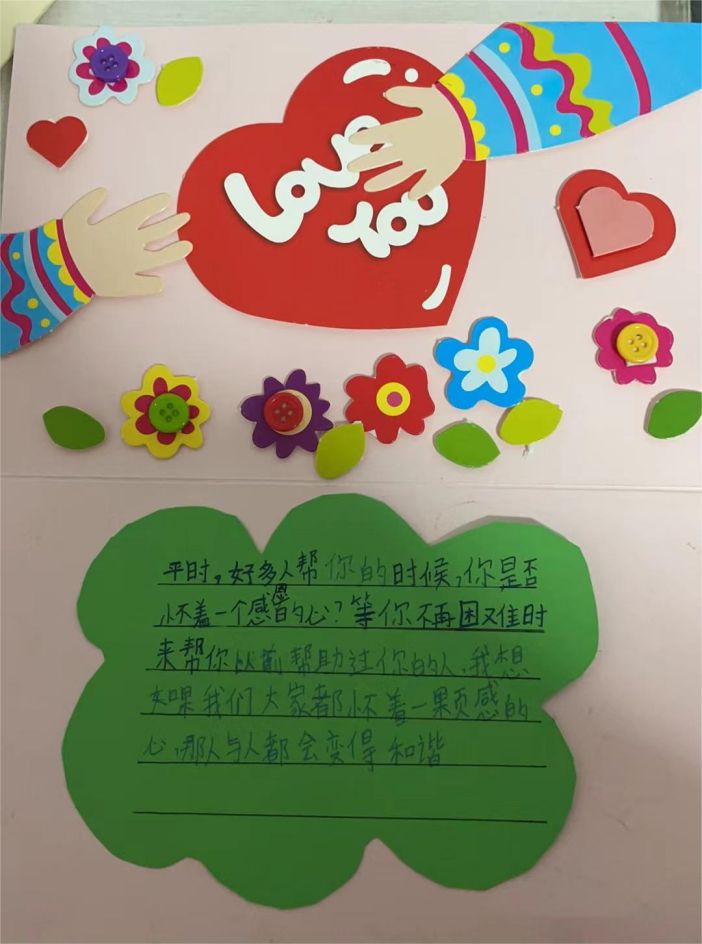 Love
You
平时,好多人帮你的时候,你是否
怀着一个感恩的心?等你不再困难时
来帮你以前帮助过你的人,我想
如果我们大家都怀着一颗感的
心,那人与人都会变得和谐